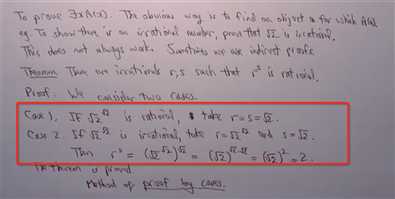 To prove ∃xA(x). The obvious way is to find an object a for which A(a)
eg. To show there is an irrational number, prove that √2 is irrational.
This does not always work. Sometimes we use indirect proofs
Theorem There are irrationals r,s such that r^s is rational.
Proof: We consider two cases.
Case 1. If √2^√2 is rational, take r=s=√2.
Case 2. If √2^√2 is irrational, take r=√2^√2 and s=√2.
Then r^s = (√2^√2)^√2 = (√2)^√2·√2 = (√2)^2 = 2.
The theorem is proved.
Method of proof by cases.